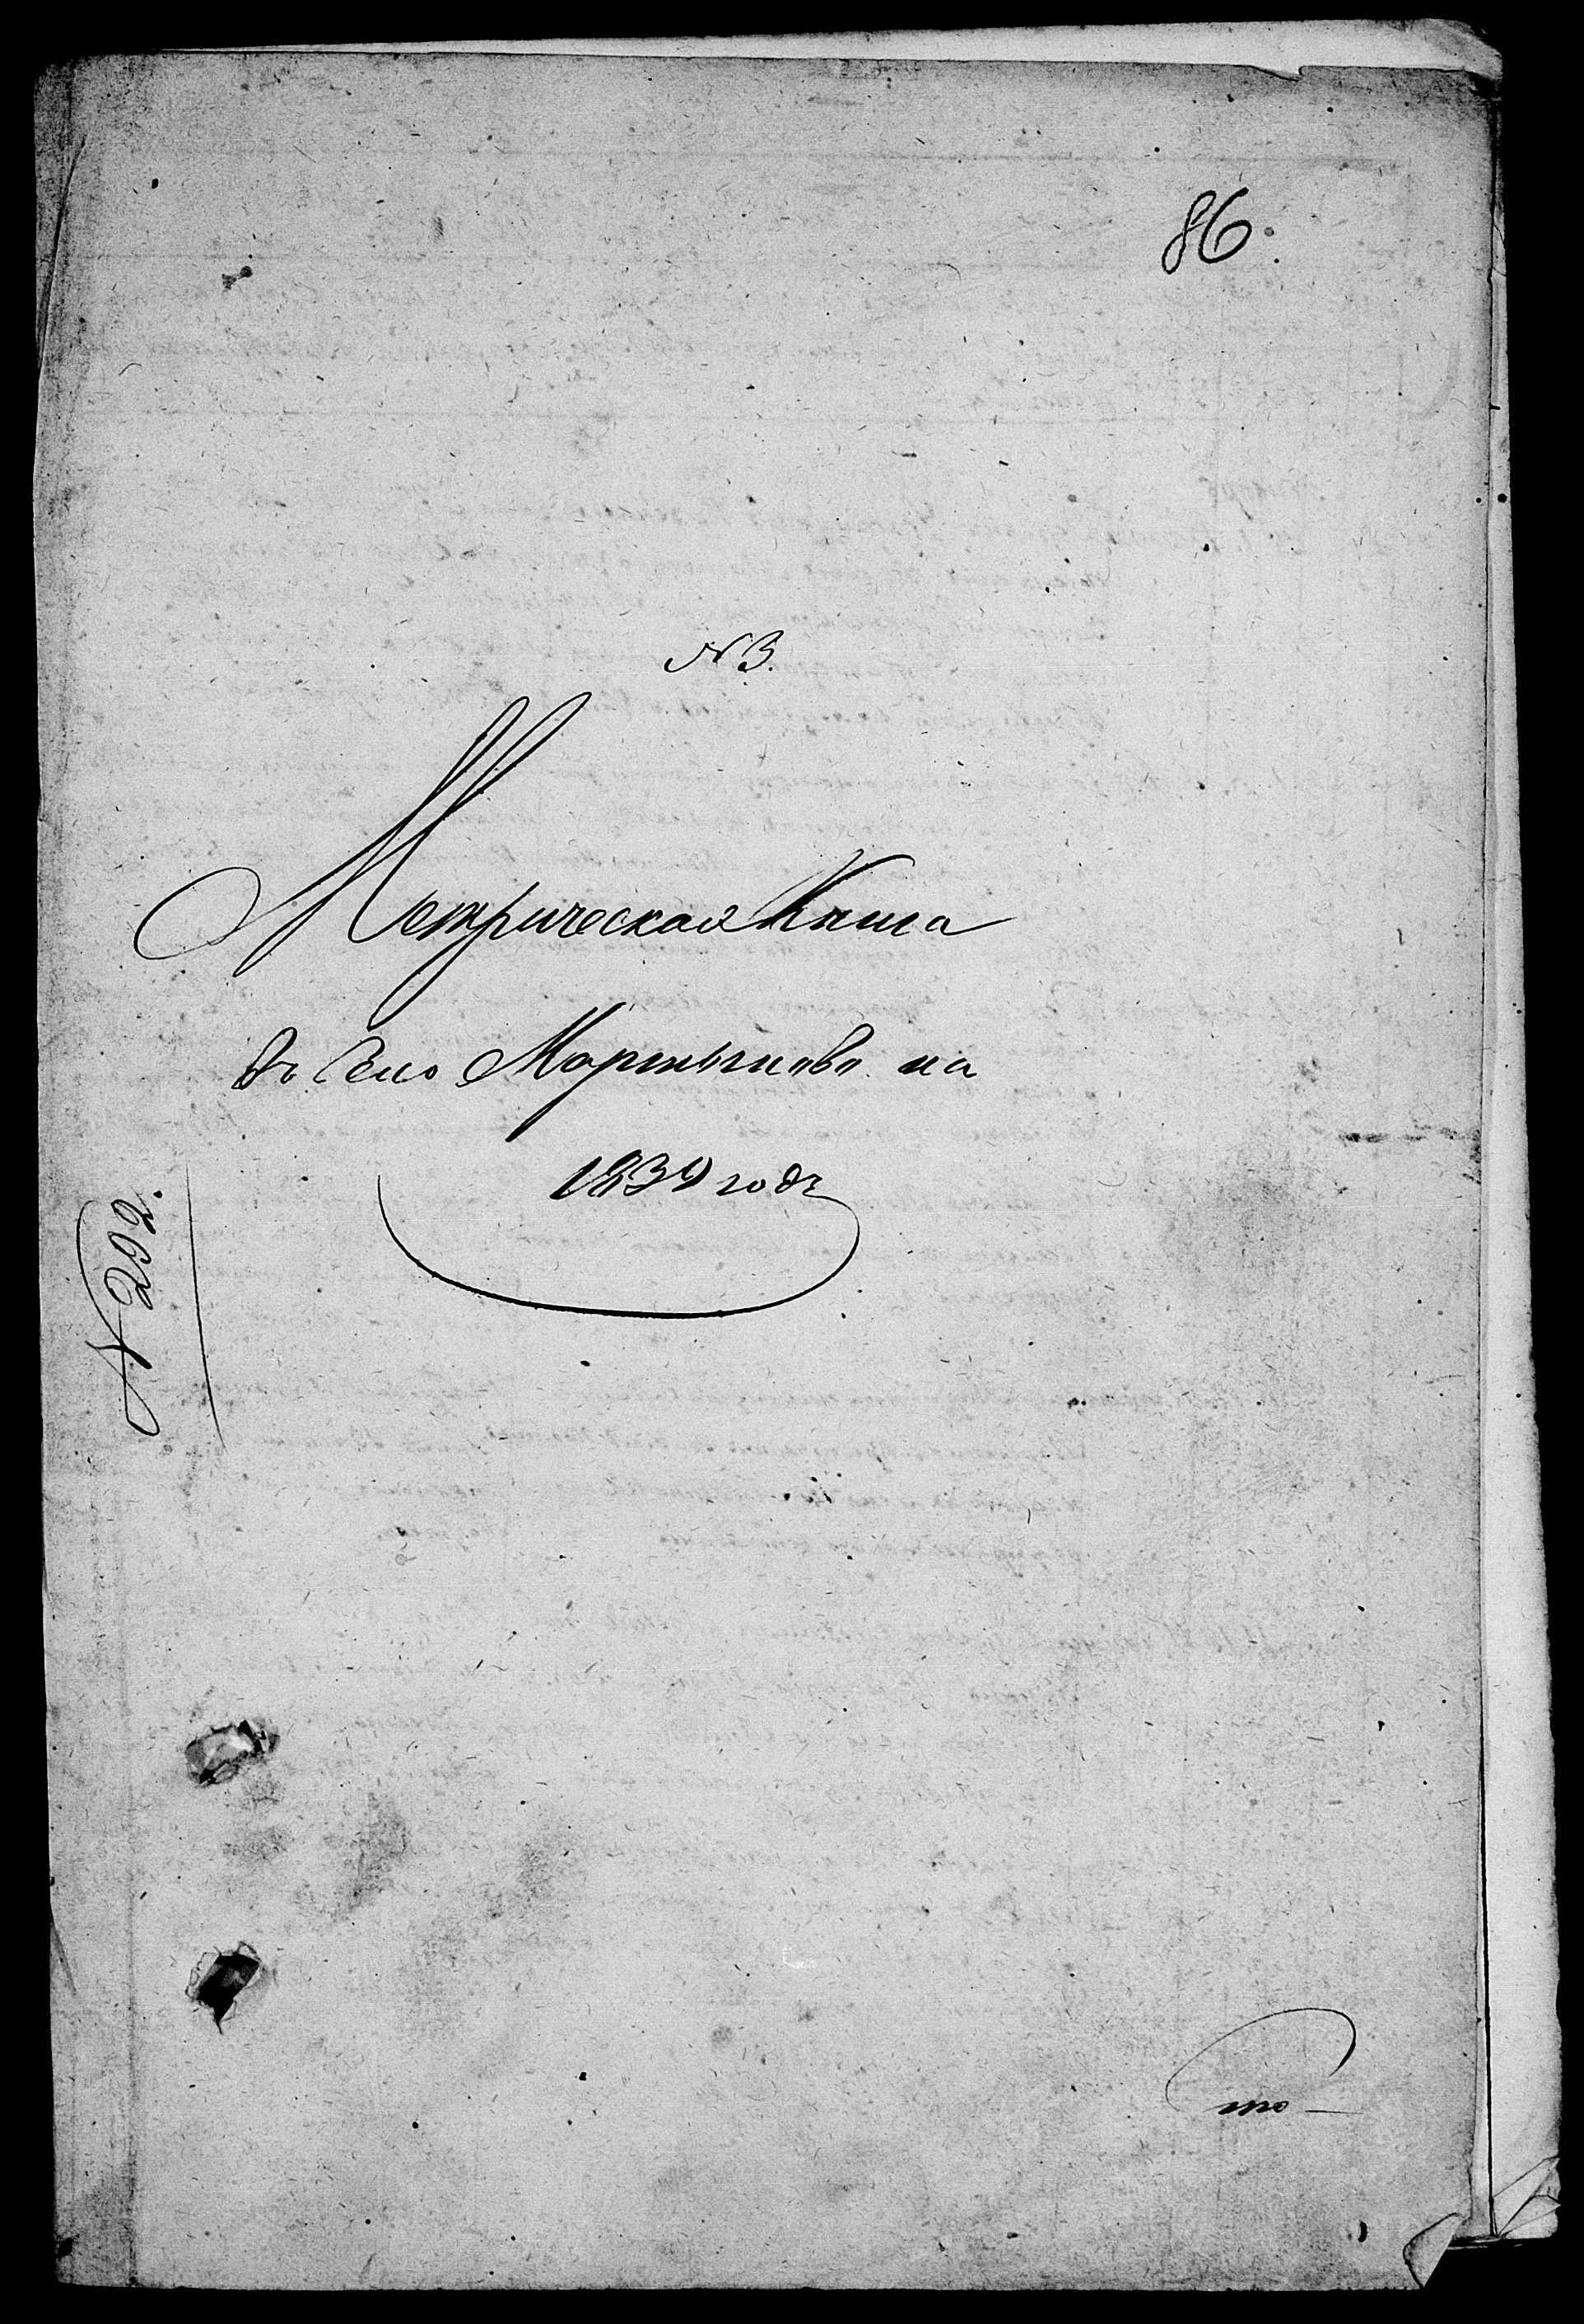 86.
N 3.
Метрическая Книга
въ Село Мартыново на
1839 годъ
N 292.
по